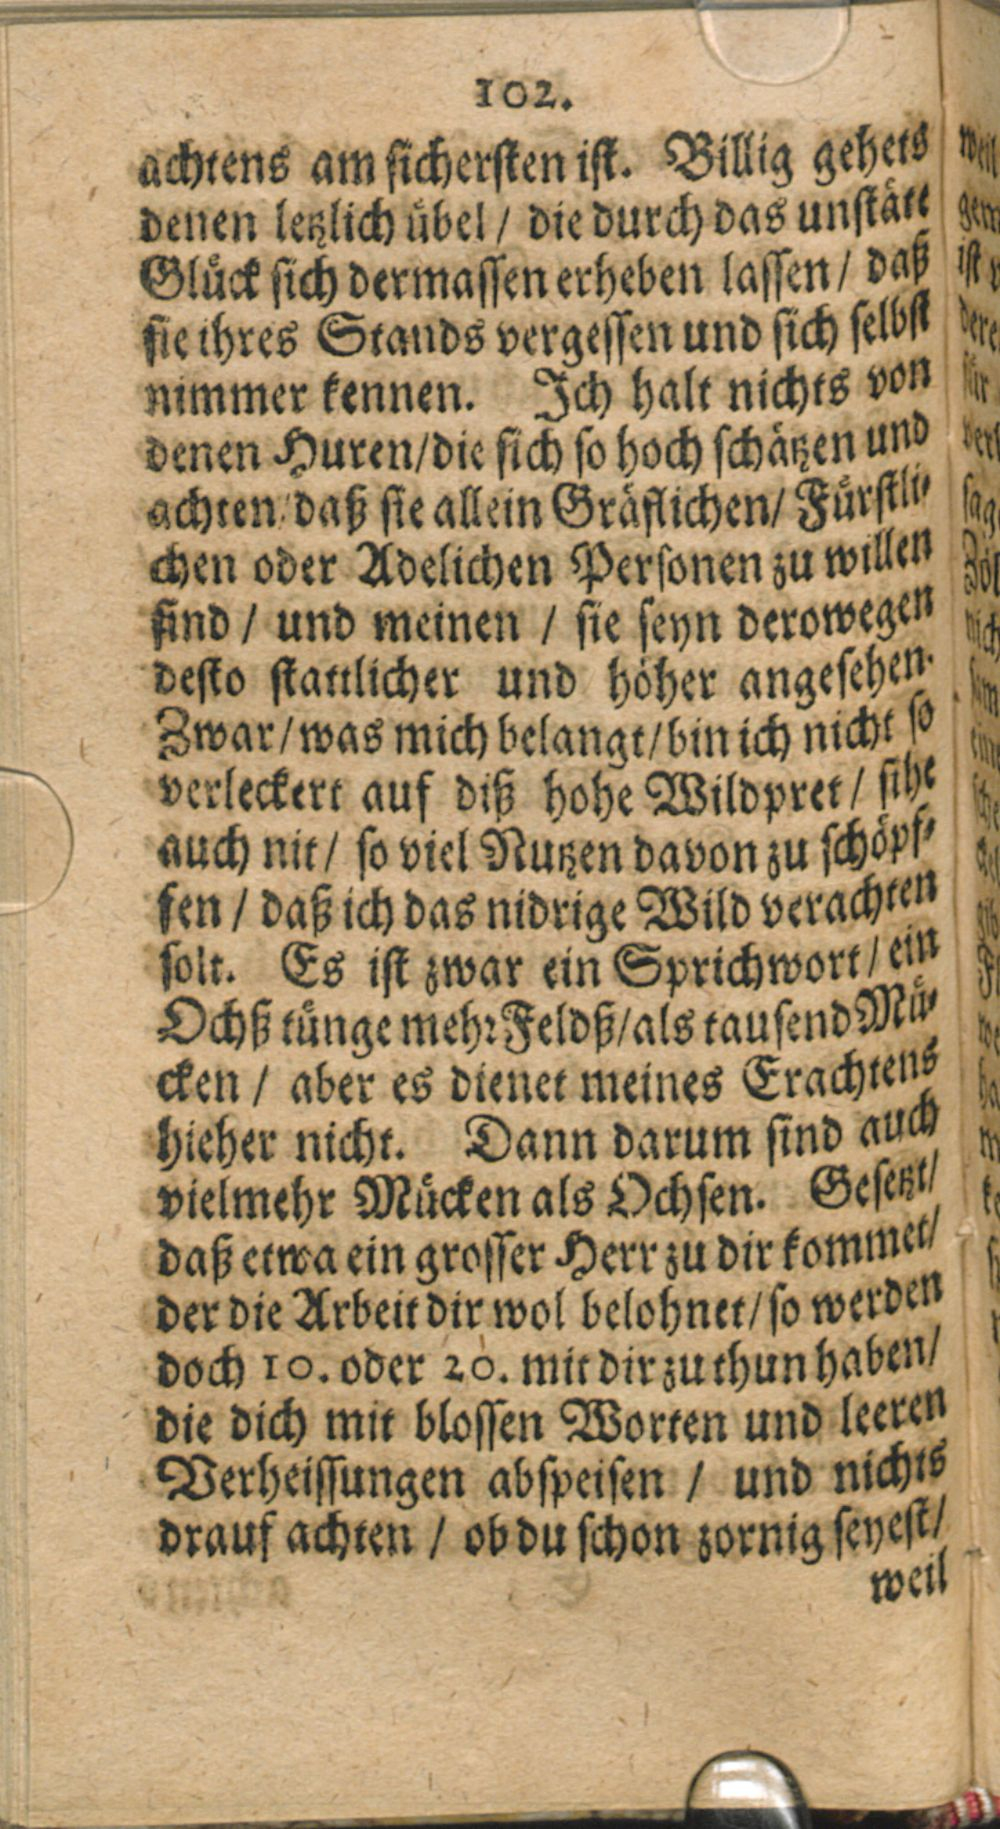 102.
achtens am sichersten ist. Billig gehets
denen letzlich übel / die durch das unstäte
Glück sich dermassen erheben lassen / daß
sie ihres Stands vergessen und sich selbst
nimmer kennen. Ich halt nichts von
denen Huren / die sich so hoch schätzen und
achten / daß sie allein Gräflichen / Fürstli-
chen oder Adelichen Personen zu willen
sind / und meinen / sie seyn derowegen
desto stattlicher und höher angesehen.
Zwar / was mich belangt / bin ich nicht so
verleckert auf diß hohe Wildpret / sihe
auch nit / so viel Nutzen davon zu schöpf-
fen / daß ich das nidrige Wild verachten
solt. Es ist zwar ein Sprichwort / ein
Ochß tünge mehr Feldß / als tausend Mü-
cken / aber es dienet meines Erachtens
hieher nicht. Dann darum sind auch
vielmehr Mücken als Ochsen. Gesetzt /
daß etwa ein grosser Herr zu dir kommet /
der die Arbeit dir wol belohnet / so werden
doch 10. oder 20. mit dir zu thun haben /
die dich mit blossen Worten und leeren
Verheissungen abspeisen / und nichts
drauf achten / ob du schon zornig seyest /
weil